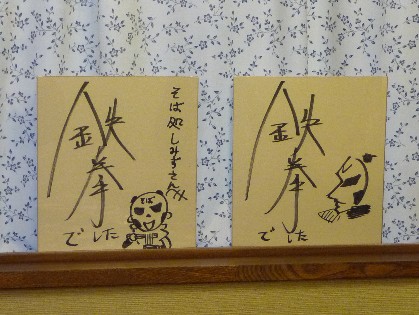 鉄拳
でした
そば処しみずさんへ
そば
鉄拳
でした